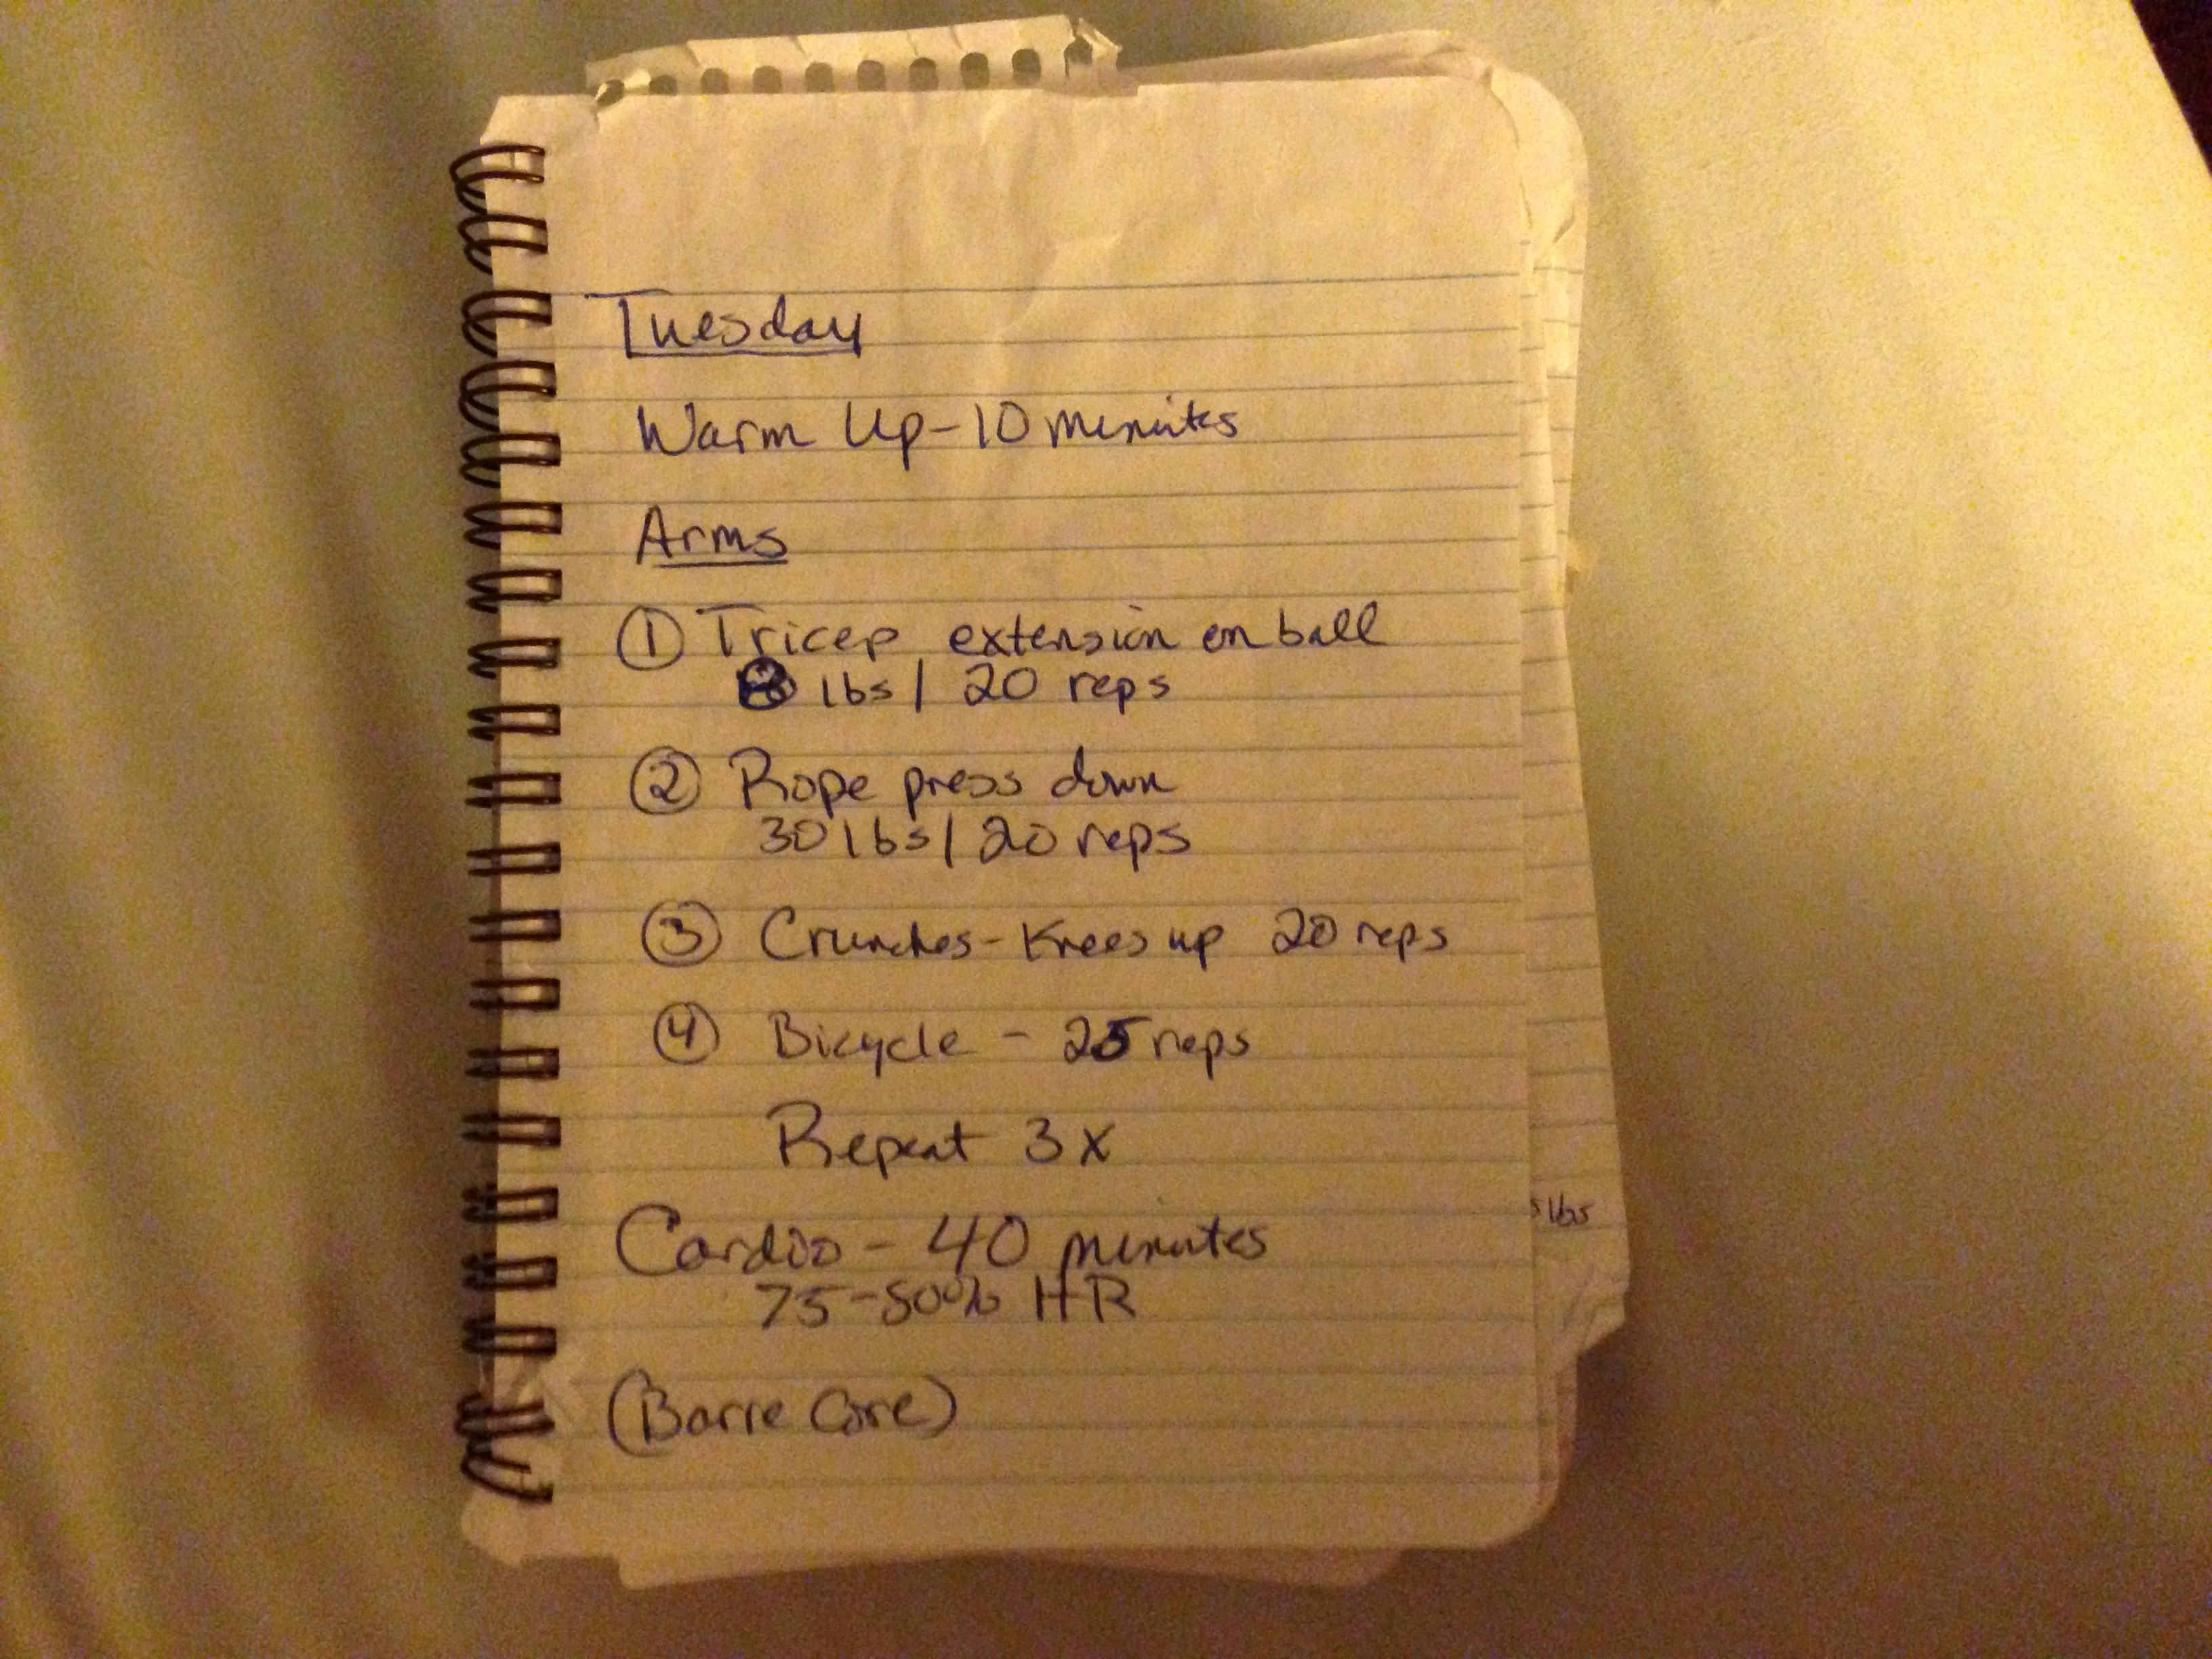 Tuesday
Warm Up - 10 minutes
Arms
① Tricep extension on ball
8 lbs / 20 reps
② Rope press down
30 lbs / 20 reps
③ Crunches - Knees up 20 reps
④ Bicycle - 25 reps
Repeat 3x
Cardio - 40 minutes
75-80% HR
(Barre Core)
lbs